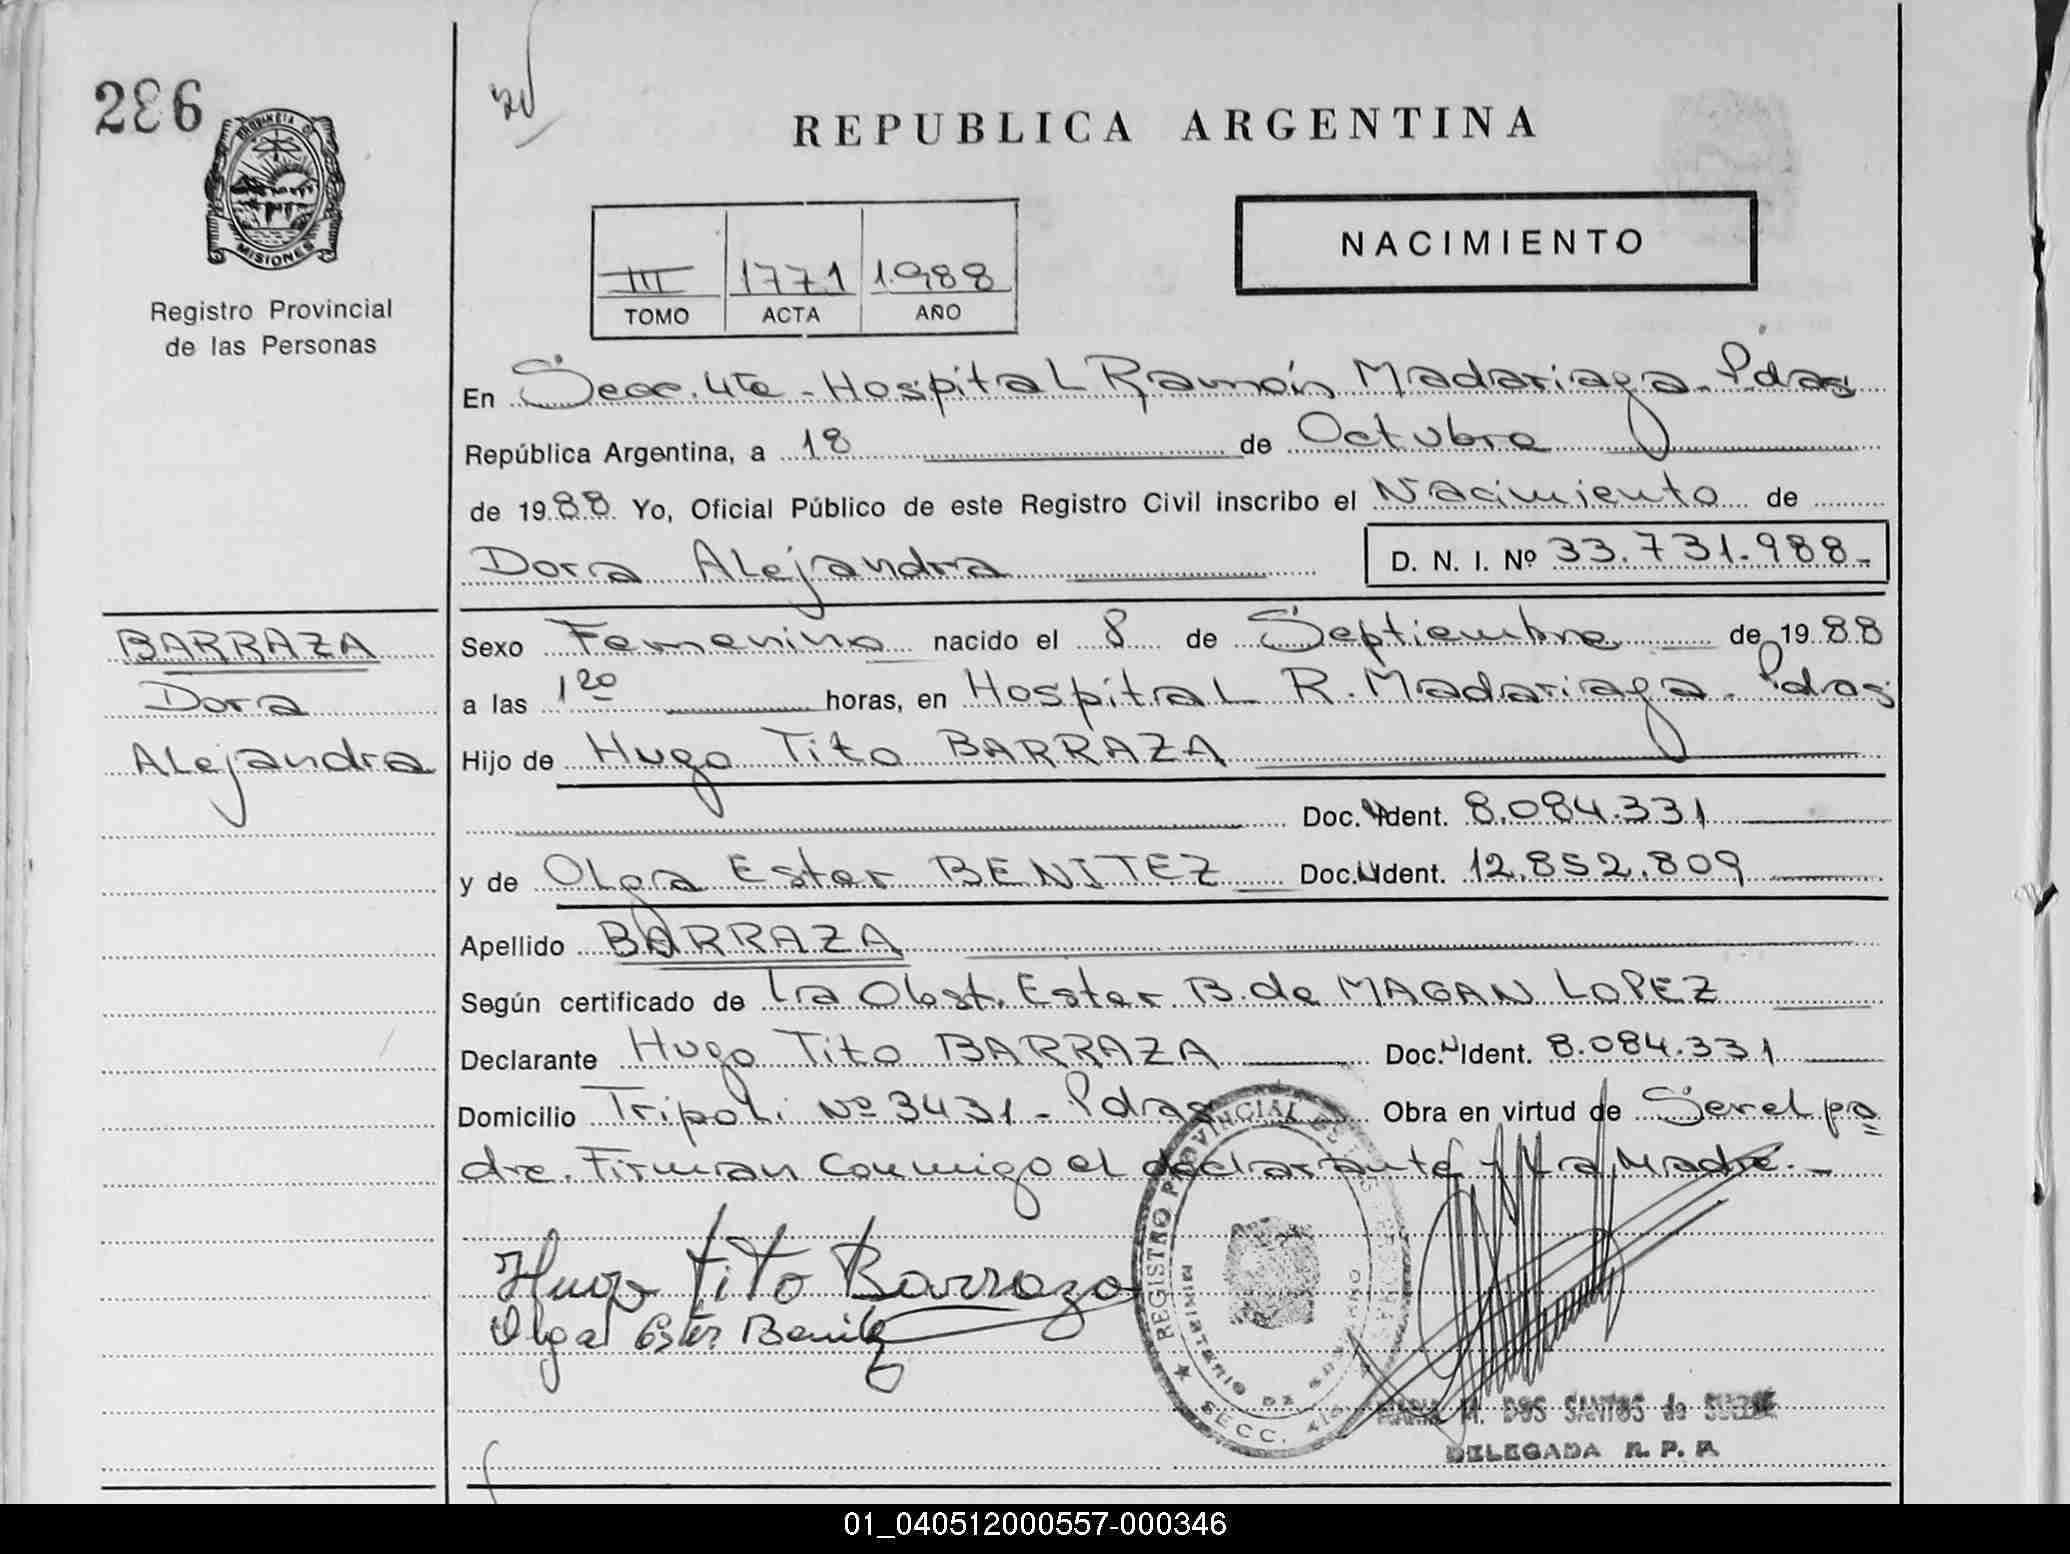 286
PROVINCIA DE
MISIONES
Registro Provincial
de las Personas
REPUBLICA ARGENTINA
III 1771 1.988
TOMO ACTA AÑO
NACIMIENTO
En Secc. 4ta - Hospital Ramón Madariaga - Pdas
República Argentina, a 18 de Octubre
de 1988 Yo, Oficial Público de este Registro Civil inscribo el Nacimiento de
Dora Alejandra D. N. I. Nº 33.731.988-
BARRAZA
Dora
Alejandra
Sexo Femenino nacido el 8 de Septiembre de 1988
a las 1 20 horas, en Hospital R. Madariaga - Pdas
Hijo de Hugo Tito BARRAZA
Doc. N Ident. 8.084.331
y de Olga Ester BENITEZ Doc. N Ident. 12.852.809
Apellido BARRAZA
Según certificado de la Obst. Ester B. de MAGAN LOPEZ
Declarante Hugo Tito BARRAZA Doc. N Ident. 8.084.331
Domicilio Tripoli Nº 3431 - Pdas Obra en virtud de Ser el pa=
dre. Firman conmigo el declarante y la Madre.-
Hugo Tito Barraza
Olga Ester Benitez
REGISTRO PROVINCIAL DE LAS PERSONAS
SECC. 4ta
MARIA M. DOS SANTOS de
DELEGADA R. P. P.
01_040512000557-000346